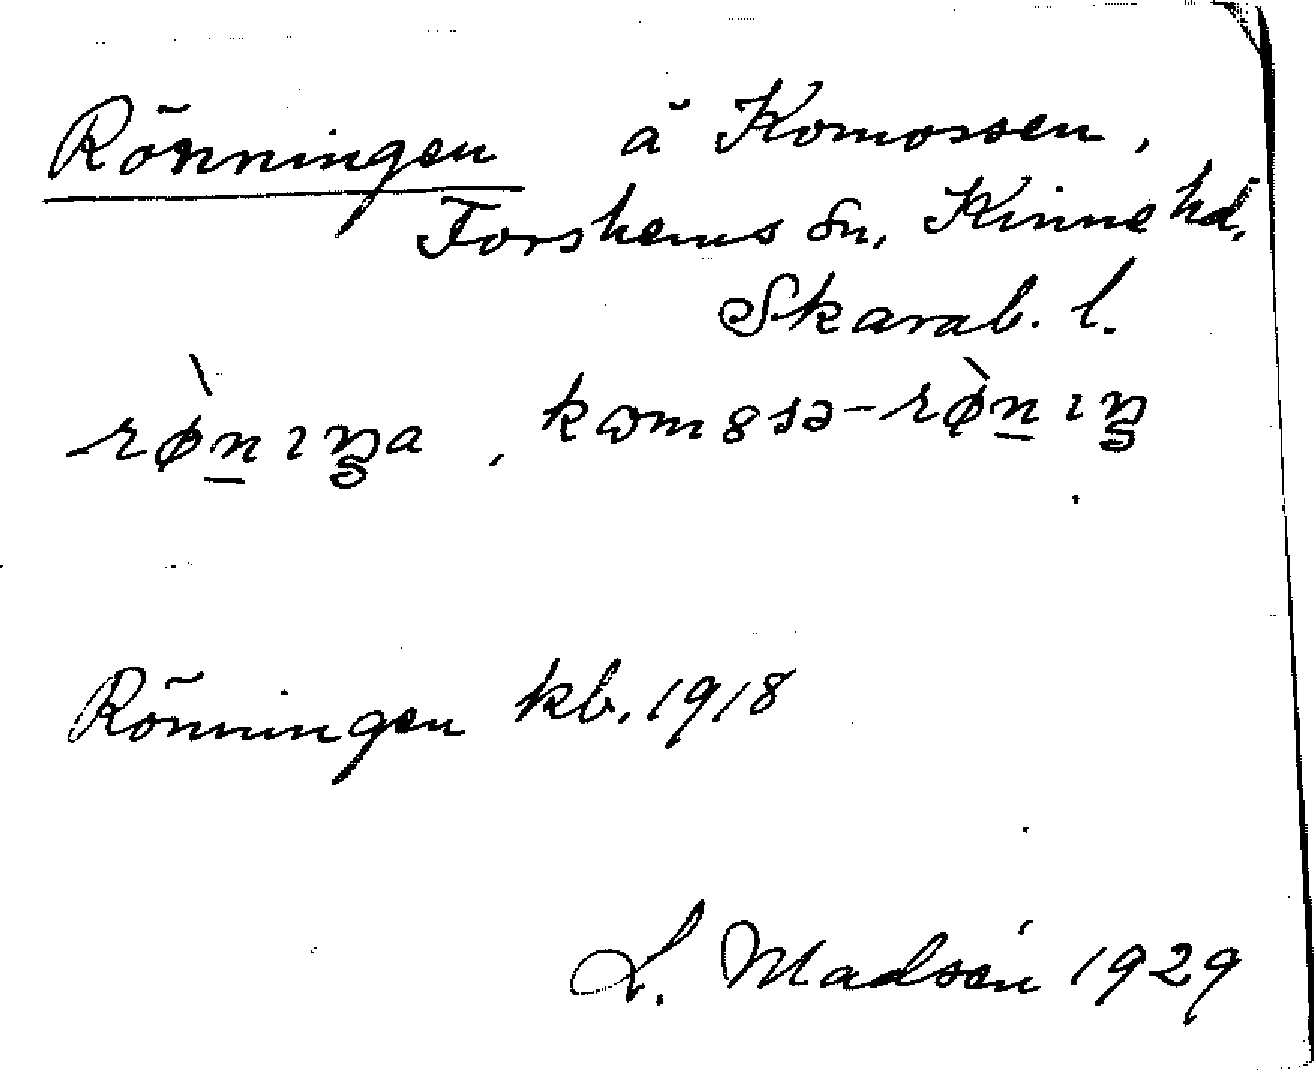 Rönningen å Komossen,
Forshems sn, Kinne hd,
Skarab. l.
rø̀n̲ıŋa, kωm8sə-rø̀n̲ıŋ
Rönningen kb. 1918
L. Madsén 1929